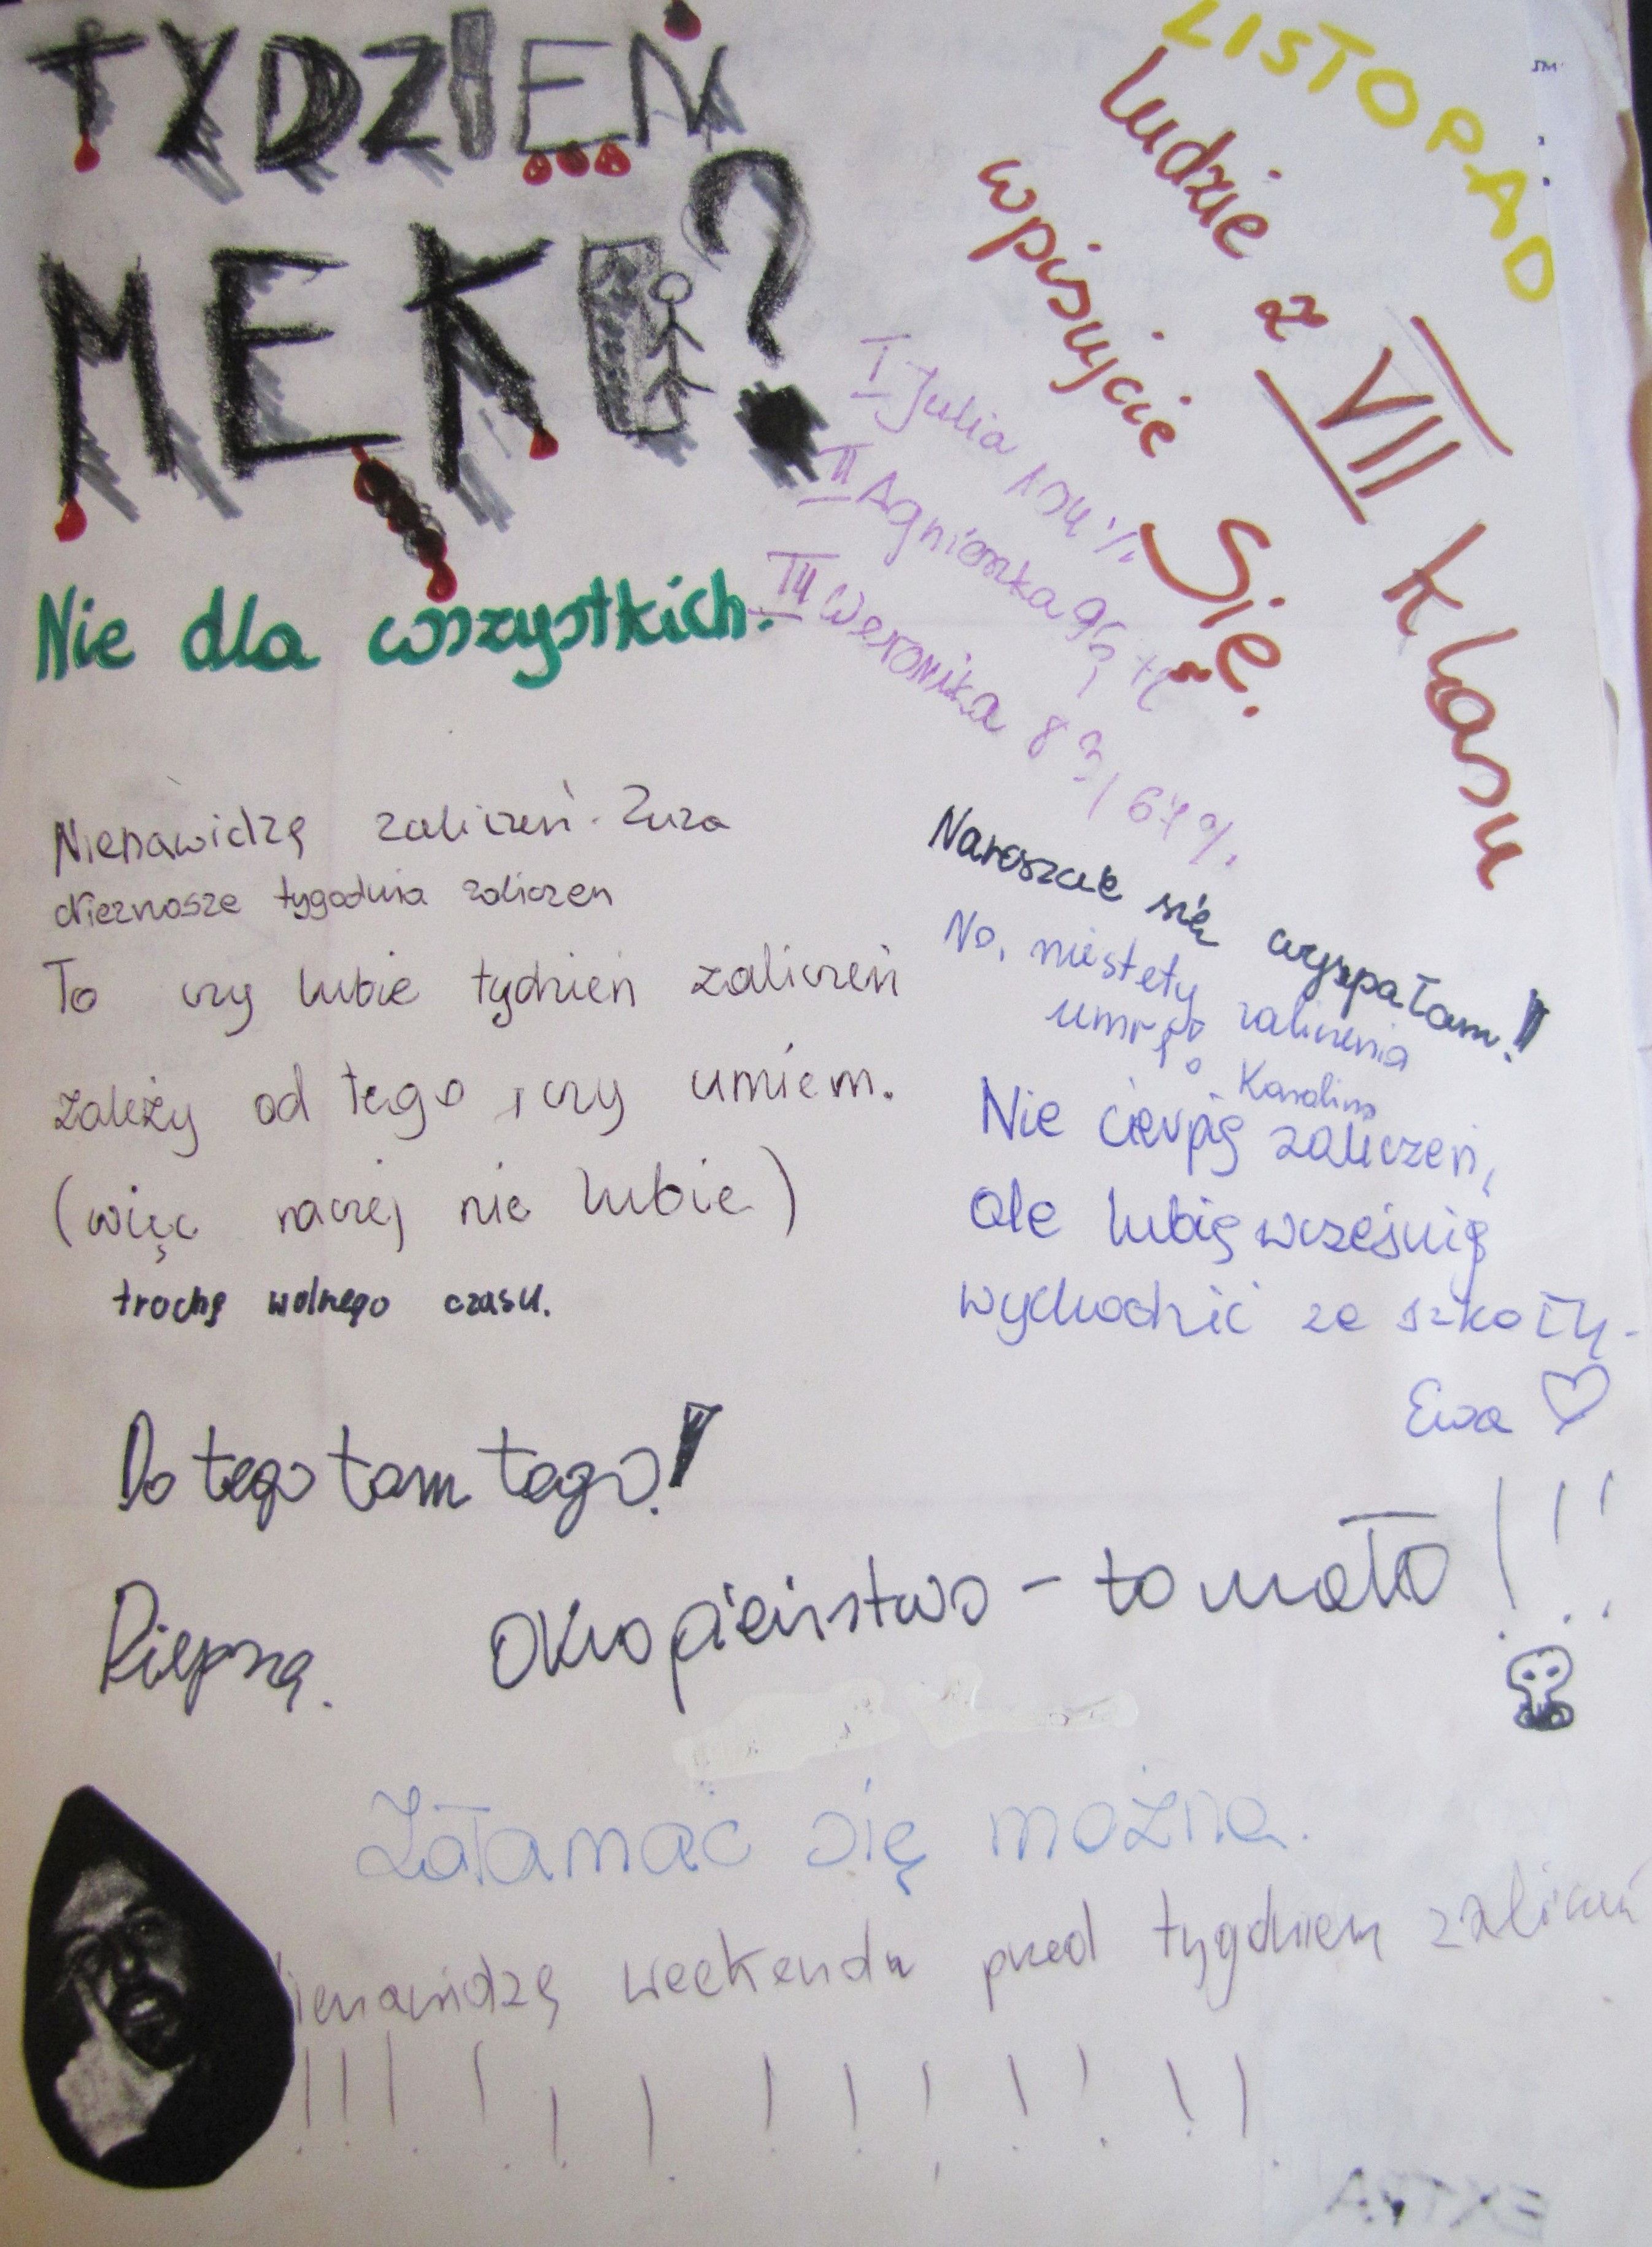 TYDZIEŃ
MĘKI?
Nie dla wszystkich.
LISTOPAD
Ludzie z VII klasu
wpisujcie się.
I Julia 104%
II Agnieszka 96,
III Weronika 83,67%
Nienawidzę zaliczeń. Zuza
Nieznosze tygodnia zaliczen
To czy lubie tydzień zaliczeń
zależy od tego, czy umiem.
(więc raczej nie lubie)
trochę wolnego czasu.
Nareszcie się wyspałam!
No, niestety zaliczenia
umrę
Karolina
Nie cierpię zaliczeń,
ale lubię wcześnię
wychodzić ze szkoły.
Ewa ♡
Do tego tam tego!
Riepną. Okropieństwo - to mało!!!
Załamać się można.
ienawidzę weekendu przed tygodniem zaliczeń
!!!!!!!!!!!!!
EXTRA